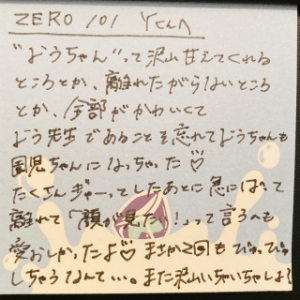 ZERO 101 Yくんへ
"ようちゃん"って沢山甘えてくれる
ところとか、離れたがらないところ
とか、全部がかわいくて
よう先生であることを忘れてようちゃんも
園児ちゃんになっちゃった♡
たくさんぎゅーってしたあとに急にばって
離れて「顔が見たい!」って言うへも
愛おしかったよ♡ まさか2回もぴゅっぴゅ
しちゃうなんて...。また沢山いちゃいちゃしよ?